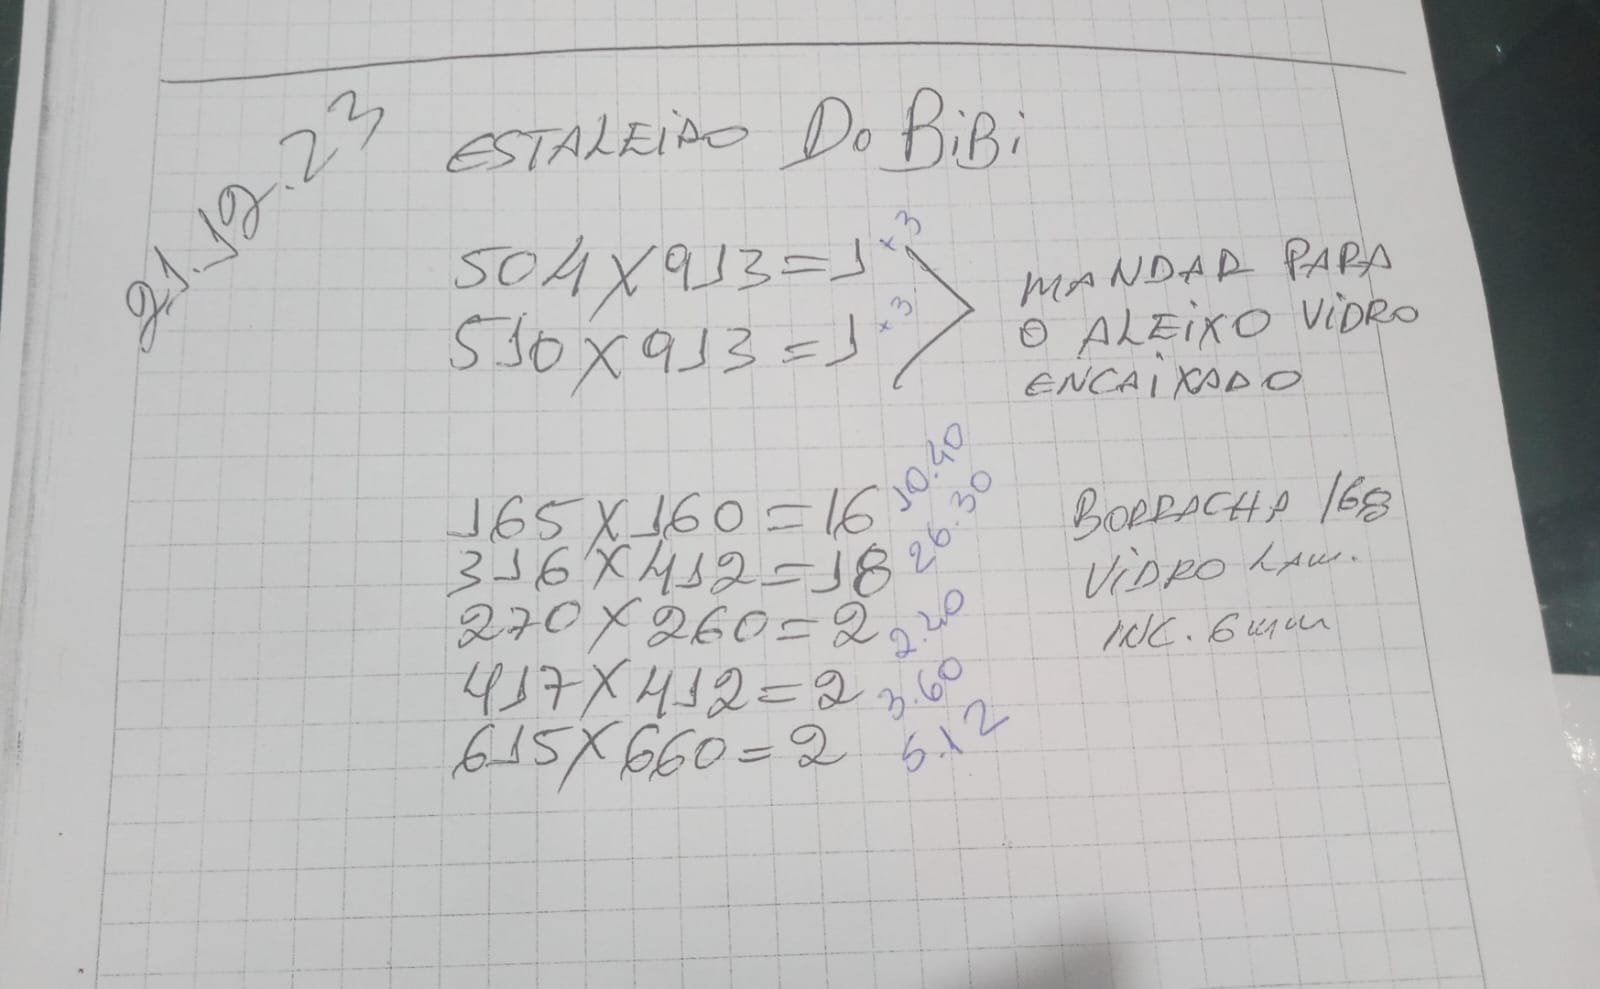 21.12.23
ESTALEIRO DO BiBi
504X913=1 x3
510X913=1 x3
MANDAR PARA
O ALEIXO VIDRO
ENCAIXADO
165X160=16 10.40
316X412=18 26.30
270X260=2 2.40
417X412=2 3.60
615X660=2 5.12
BORRACHA 168
VIDRO LAM.
INC. 6mm